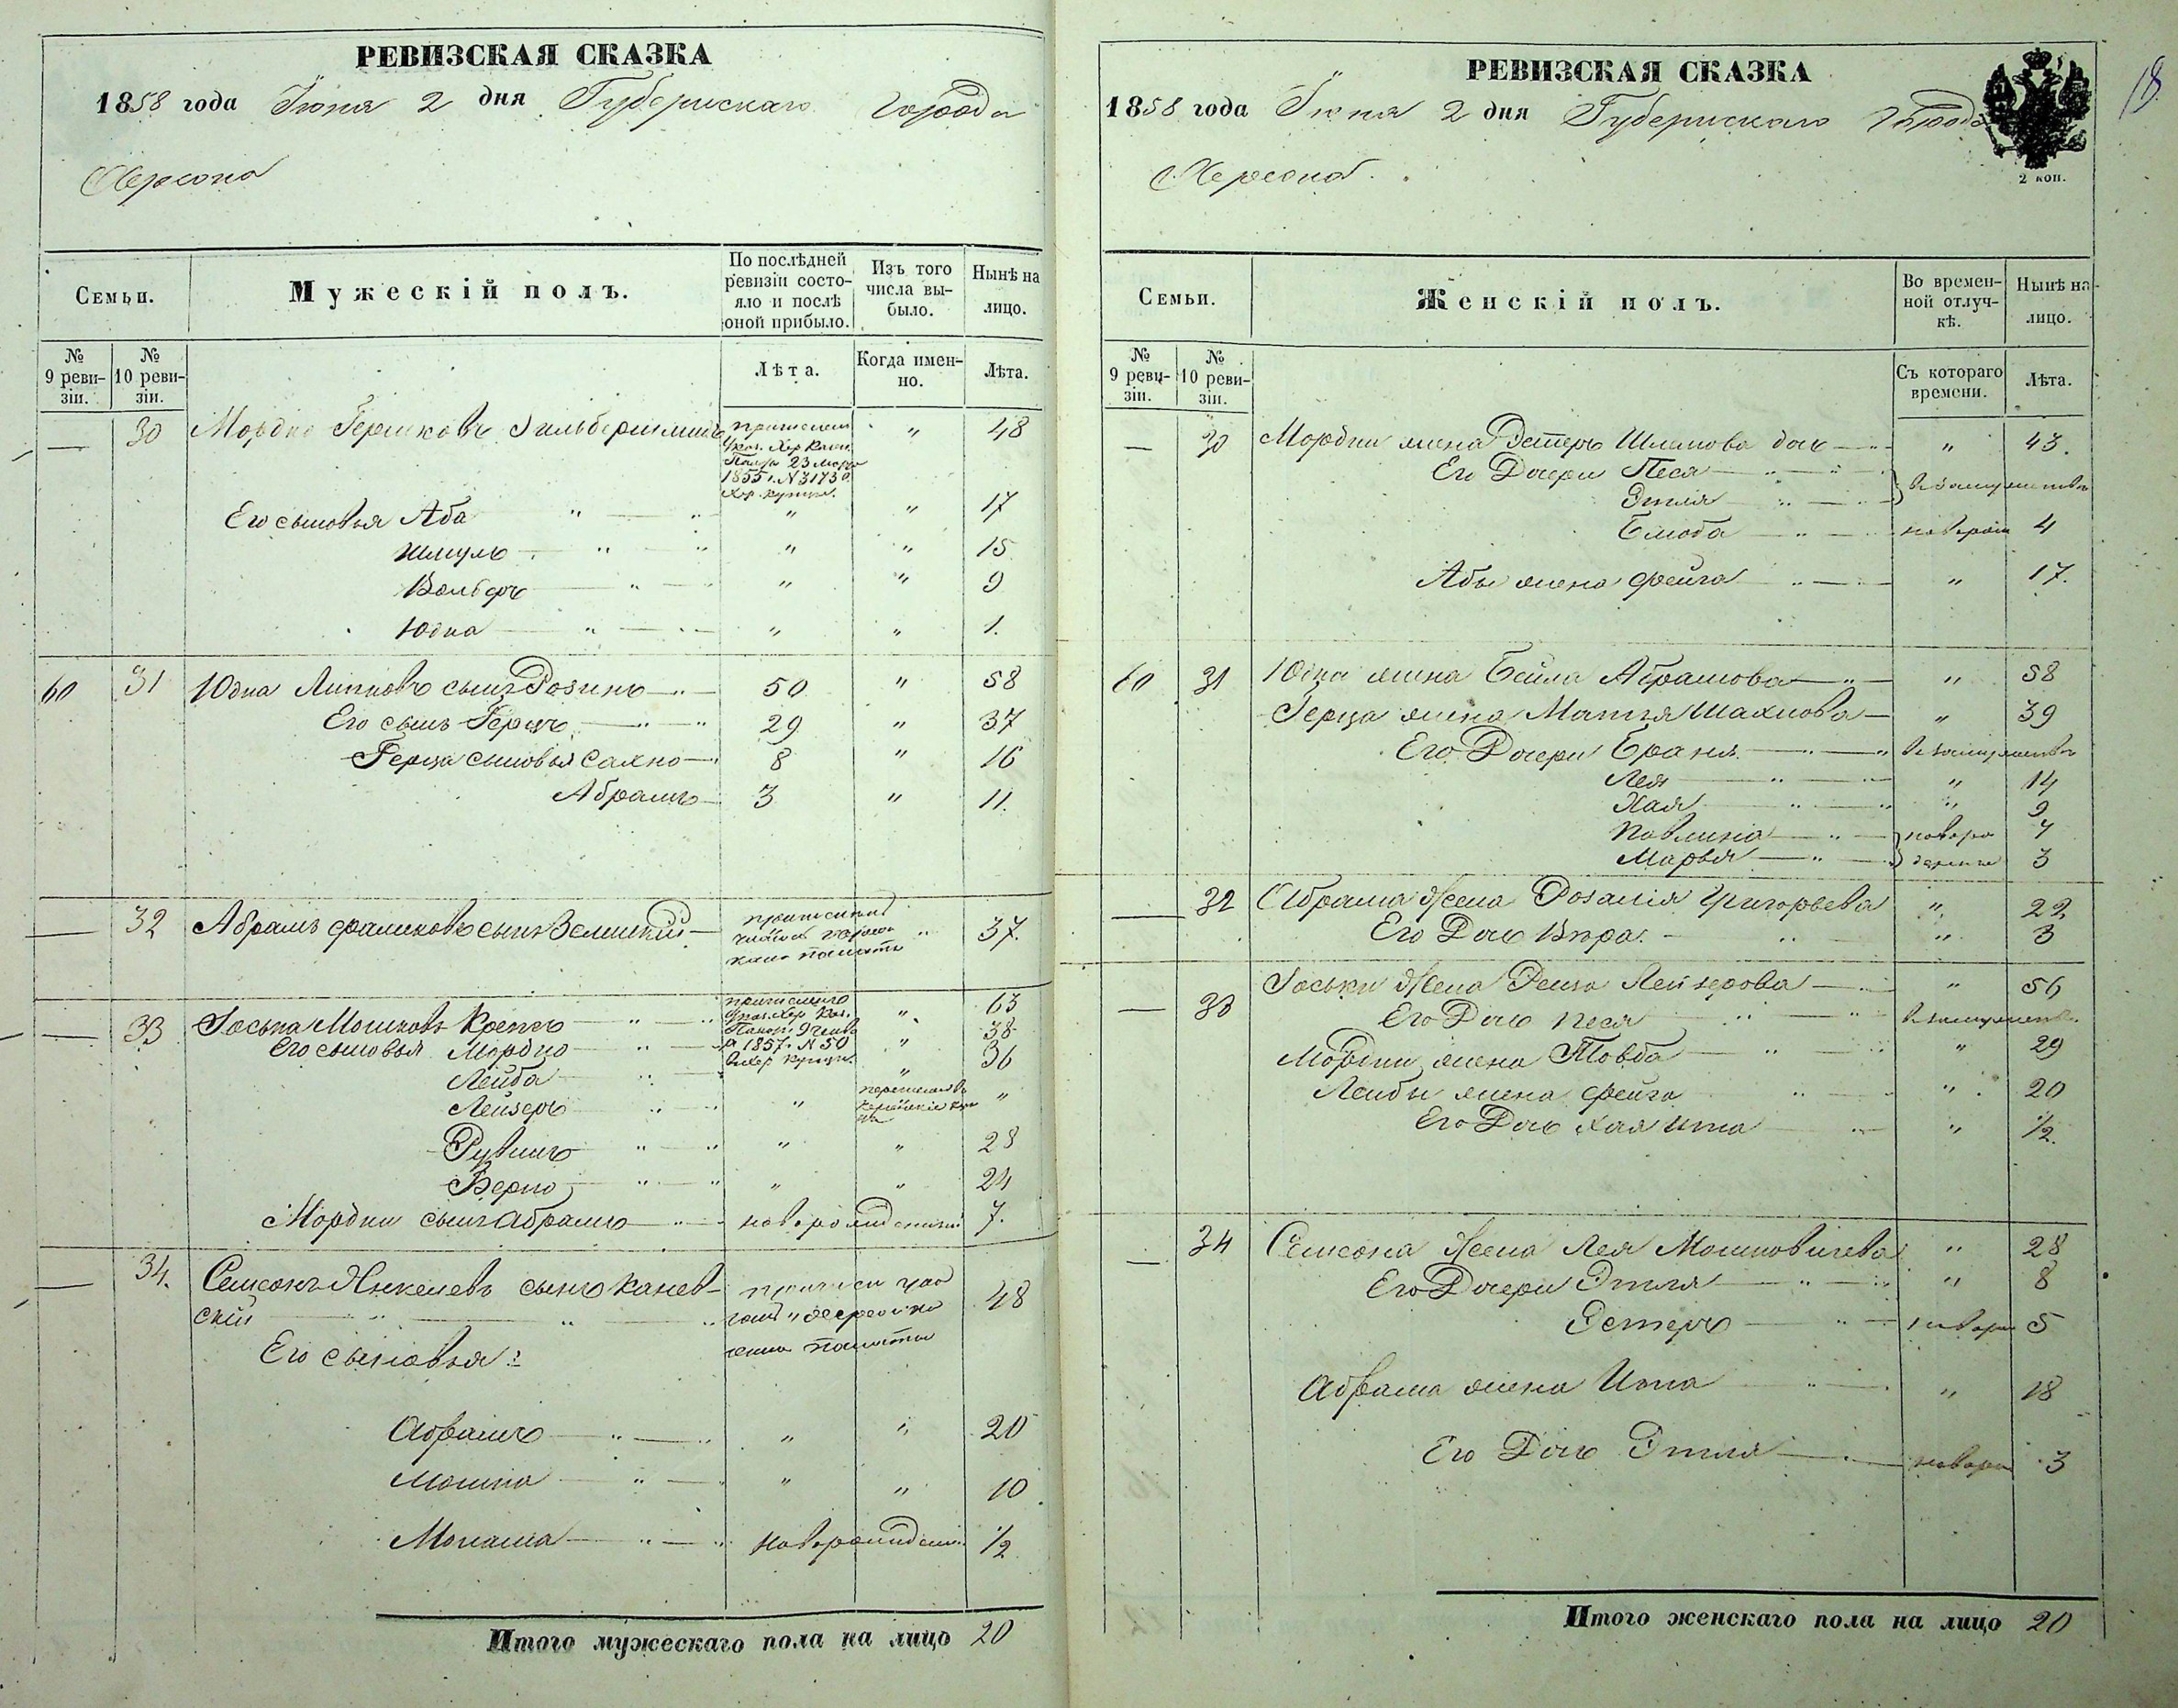 РЕВИЗСКАЯ СКАЗКА
1858 года Іюня 2 дня Губернскаго города
Херсона
Семьи.
Мужескій полъ.
По послѣдней ревизіи состояло и послѣ оной прибыло.
Изъ того числа вы-было.
Нынѣ на лицо.
№ 9 реви-зіи.
№ 10 реви-зіи.
Лѣта.
Когда имен-но.
Лѣта.
— 30 Мордко Гершковъ " 48
23 1855 г. №
Его сыновья Аба " — " " " 17
Шмуль " — " " " 15
Вольфъ " — " " 9
Юдка — " — " " " 1.
60 31 Юдка Липковъ сынъ Розинъ — " — 50 " 58
Его сынъ Герцъ — " — " 29 " 37
Герца сыновья Сахно — 8 " 16
Абрамъ — 3 " 11.
— 32 Абрамъ сынъ — " 37.
— 33 Іоська Мошковъ " — " " 63
Его сыновья Мордко " — " 38
1857 г. № 50
Лейба " — " 36
Лейзеръ " — " " "
Рувинъ " — " " " 28
Берко " — " " " 24
Мордки сынъ Абрамъ — " — новорожденный 7.
— 34. Семсонъ сынъ Канев-
скій " — " 48
Его сыновья:
Абрамъ — " — " " " 20
Мошко — " — " " " 10
Монаша — " — " новорожденн. 1/2
Итого мужескаго пола на лицо 20
18.
РЕВИЗСКАЯ СКАЗКА
1858 года Іюня 2 дня Губернскаго города
2 коп.
Херсона.
Семьи.
Женскій полъ.
Во времен-ной отлуч-кѣ.
Нынѣ на лицо.
№ 9 реви-зіи.
№ 10 реви-зіи.
Съ котораго времени.
Лѣта.
— 30 Мордки жена Эстеръ Шлемова дочь — " 43.
Его Дочери Песя — " — " } в замужествѣ
Этля " — "
Блюба — " — новорож 4
Абы жена Фейга " — " 17.
60 31 Юдки жена Бейла Абрамова — " — " 58
Герца жена Матля Шахнова — " 39
Его Дочери Браня — " — " в замужествѣ
Лея — " — " " 14
Хая — " — " " 9
Павлина — " — } новоро 7
Марья — " — } 3
— 32 Абрама Жена Розалія Григорьева " 22
Его Дочь Вѣра. — " " 3
— 33 Іоськи Жена Рейза Лейзерова — " " 56
Его Дочь Песя " — " в замужеств.
Мордки жена Товба — " — " " 29
Лейбы жена Фейга " — " 20
Его Дочь Хая Ита — " " 1/2.
— 34 Семсона Жена Лея Мошковичева " 28
Его Дочери Этля — " — " " 8
Эстеръ — " — новоро 5
Абрама жена Ита " — " 18
Его Дочь Этля — " новоро 3
Итого женскаго пола на лицо 20